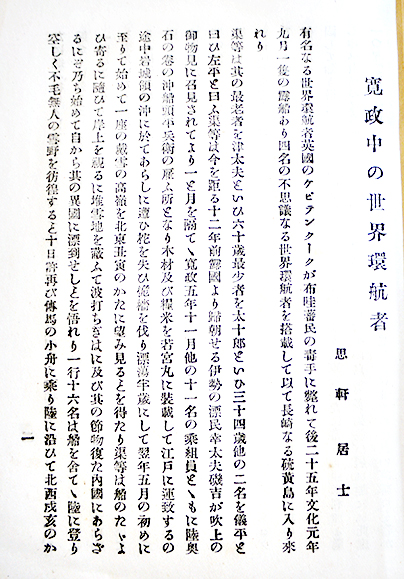 寛政中の世界環航者
思軒居士
有名なる世界環航者英國のケピテンクークが布哇蕃民の毒手に斃れて後二十五年文化元年
九月一隻の露船あり四名の不思議なる世界環航者を搭載して以て長崎なる硫黄島に入り來
れり
渠等は其の最老者を津太夫といひ六十歳最少者を太十郎といひ三十四歳他の二名を儀平と
曰ひ左平と曰ふ渠等は今を距る十二年前露國より歸朝せる伊勢の漂民幸太夫磯吉が吹上の
御物見に召見されてより一と月を隔てゝ寛政五年十一月他の十一名の乘組員とゝもに陸奥
石の巻の沖船頭平兵衛の雇ふ所となり木材及び糧米を若宮丸に裝載して江戸に運致するの
途中岩城領の沖に於てあらしに遭ひ柁を失ひ帆檣を伐り漂蕩半歳にして翌年五月の初めに
至りて始めて一座の戴雪の高嶺を北東丑寅のかたに望み見るとを得たり渠等は船のたゞよ
ひ寄るに隨ひて岸上を視るに堆雪地を蔽ふて波打ちぎはに及び其の節物復た内國にあらざ
るにぞ乃ち始めて自から其の異國に漂到せしとを悟れり一行十六名は船を舍てゝ陸に登り
空しく不毛無人の雪野を彷徨すると十日許再び傳馬の小舟に乘り陸に沿ひて北西戌亥のか
一